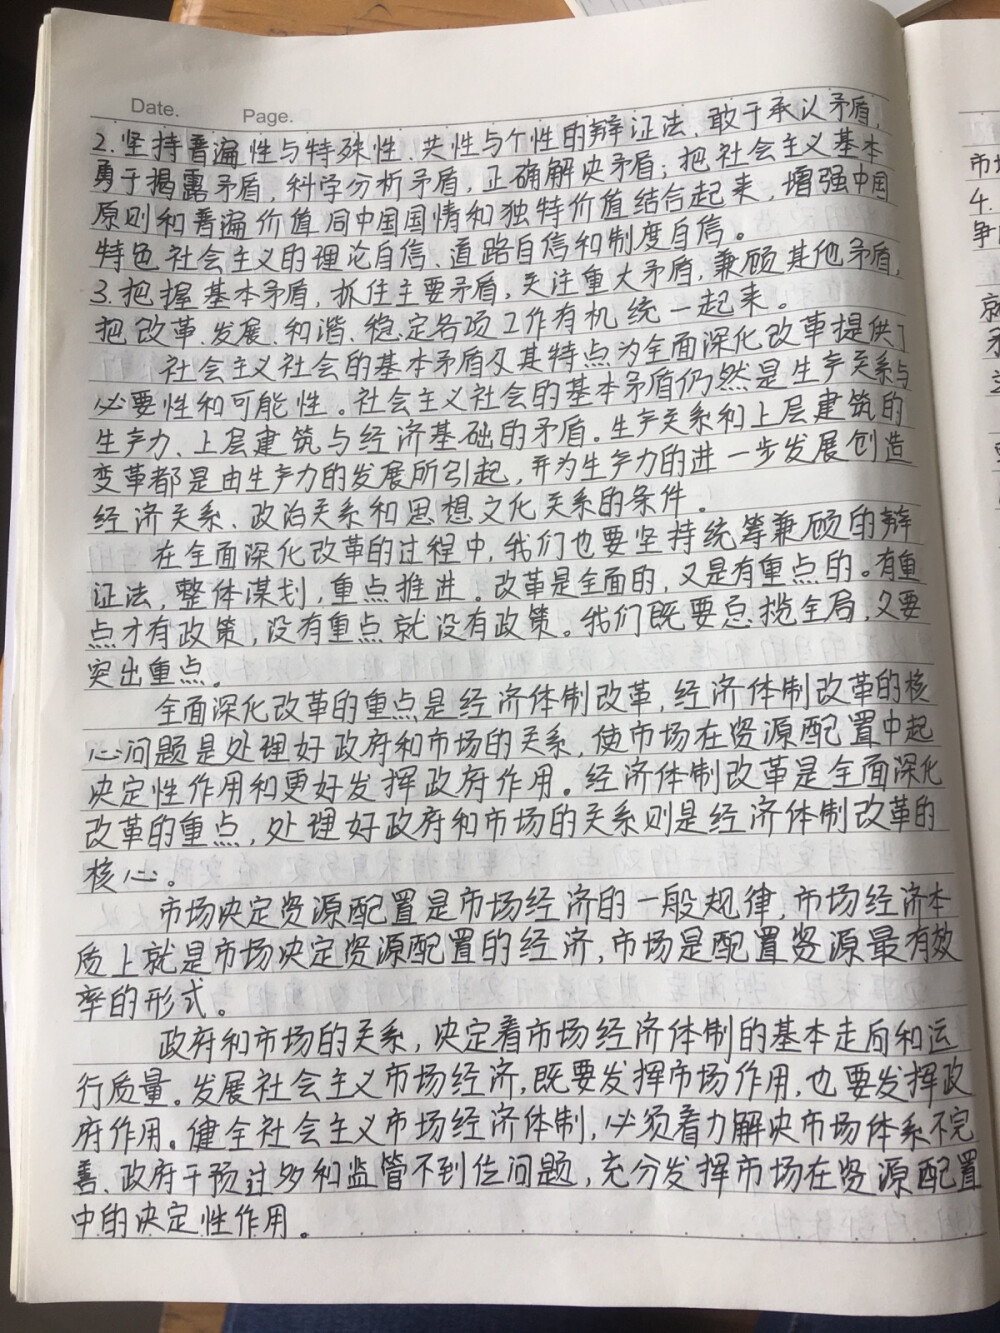 Date. Page.
2.坚持普遍性与特殊性、共性与个性的辩证法，敢于承认矛盾，
勇于揭露矛盾，科学分析矛盾，正确解决矛盾；把社会主义基本
原则和普遍价值同中国国情和独特价值结合起来，增强中国
特色社会主义的理论自信、道路自信和制度自信。
3.把握基本矛盾，抓住主要矛盾，关注重大矛盾，兼顾其他矛盾，
把改革、发展、和谐、稳定各项工作有机统一起来。
社会主义社会的基本矛盾及其特点为全面深化改革提供了
必要性和可能性。社会主义社会的基本矛盾仍然是生产关系与
生产力、上层建筑与经济基础的矛盾。生产关系和上层建筑的
变革都是由生产力的发展所引起，并为生产力的进一步发展创造
经济关系、政治关系和思想文化关系的条件。
在全面深化改革的过程中，我们也要坚持统筹兼顾的辩
证法，整体谋划，重点推进。改革是全面的，又是有重点的。有重
点才有政策，没有重点就没有政策。我们既要总揽全局，又要
突出重点。
全面深化改革的重点是经济体制改革，经济体制改革的核
心问题是处理好政府和市场的关系，使市场在资源配置中起
决定性作用和更好发挥政府作用。经济体制改革是全面深化
改革的重点，处理好政府和市场的关系则是经济体制改革的
核心。
市场决定资源配置是市场经济的一般规律，市场经济本
质上就是市场决定资源配置的经济，市场是配置资源最有效
率的形式。
政府和市场的关系，决定着市场经济体制的基本走向和运
行质量。发展社会主义市场经济，既要发挥市场作用，也要发挥政
府作用。健全社会主义市场经济体制，必须着力解决市场体系不完
善、政府干预过多和监管不到位问题，充分发挥市场在资源配置
中的决定性作用。
市场
4.
争
就